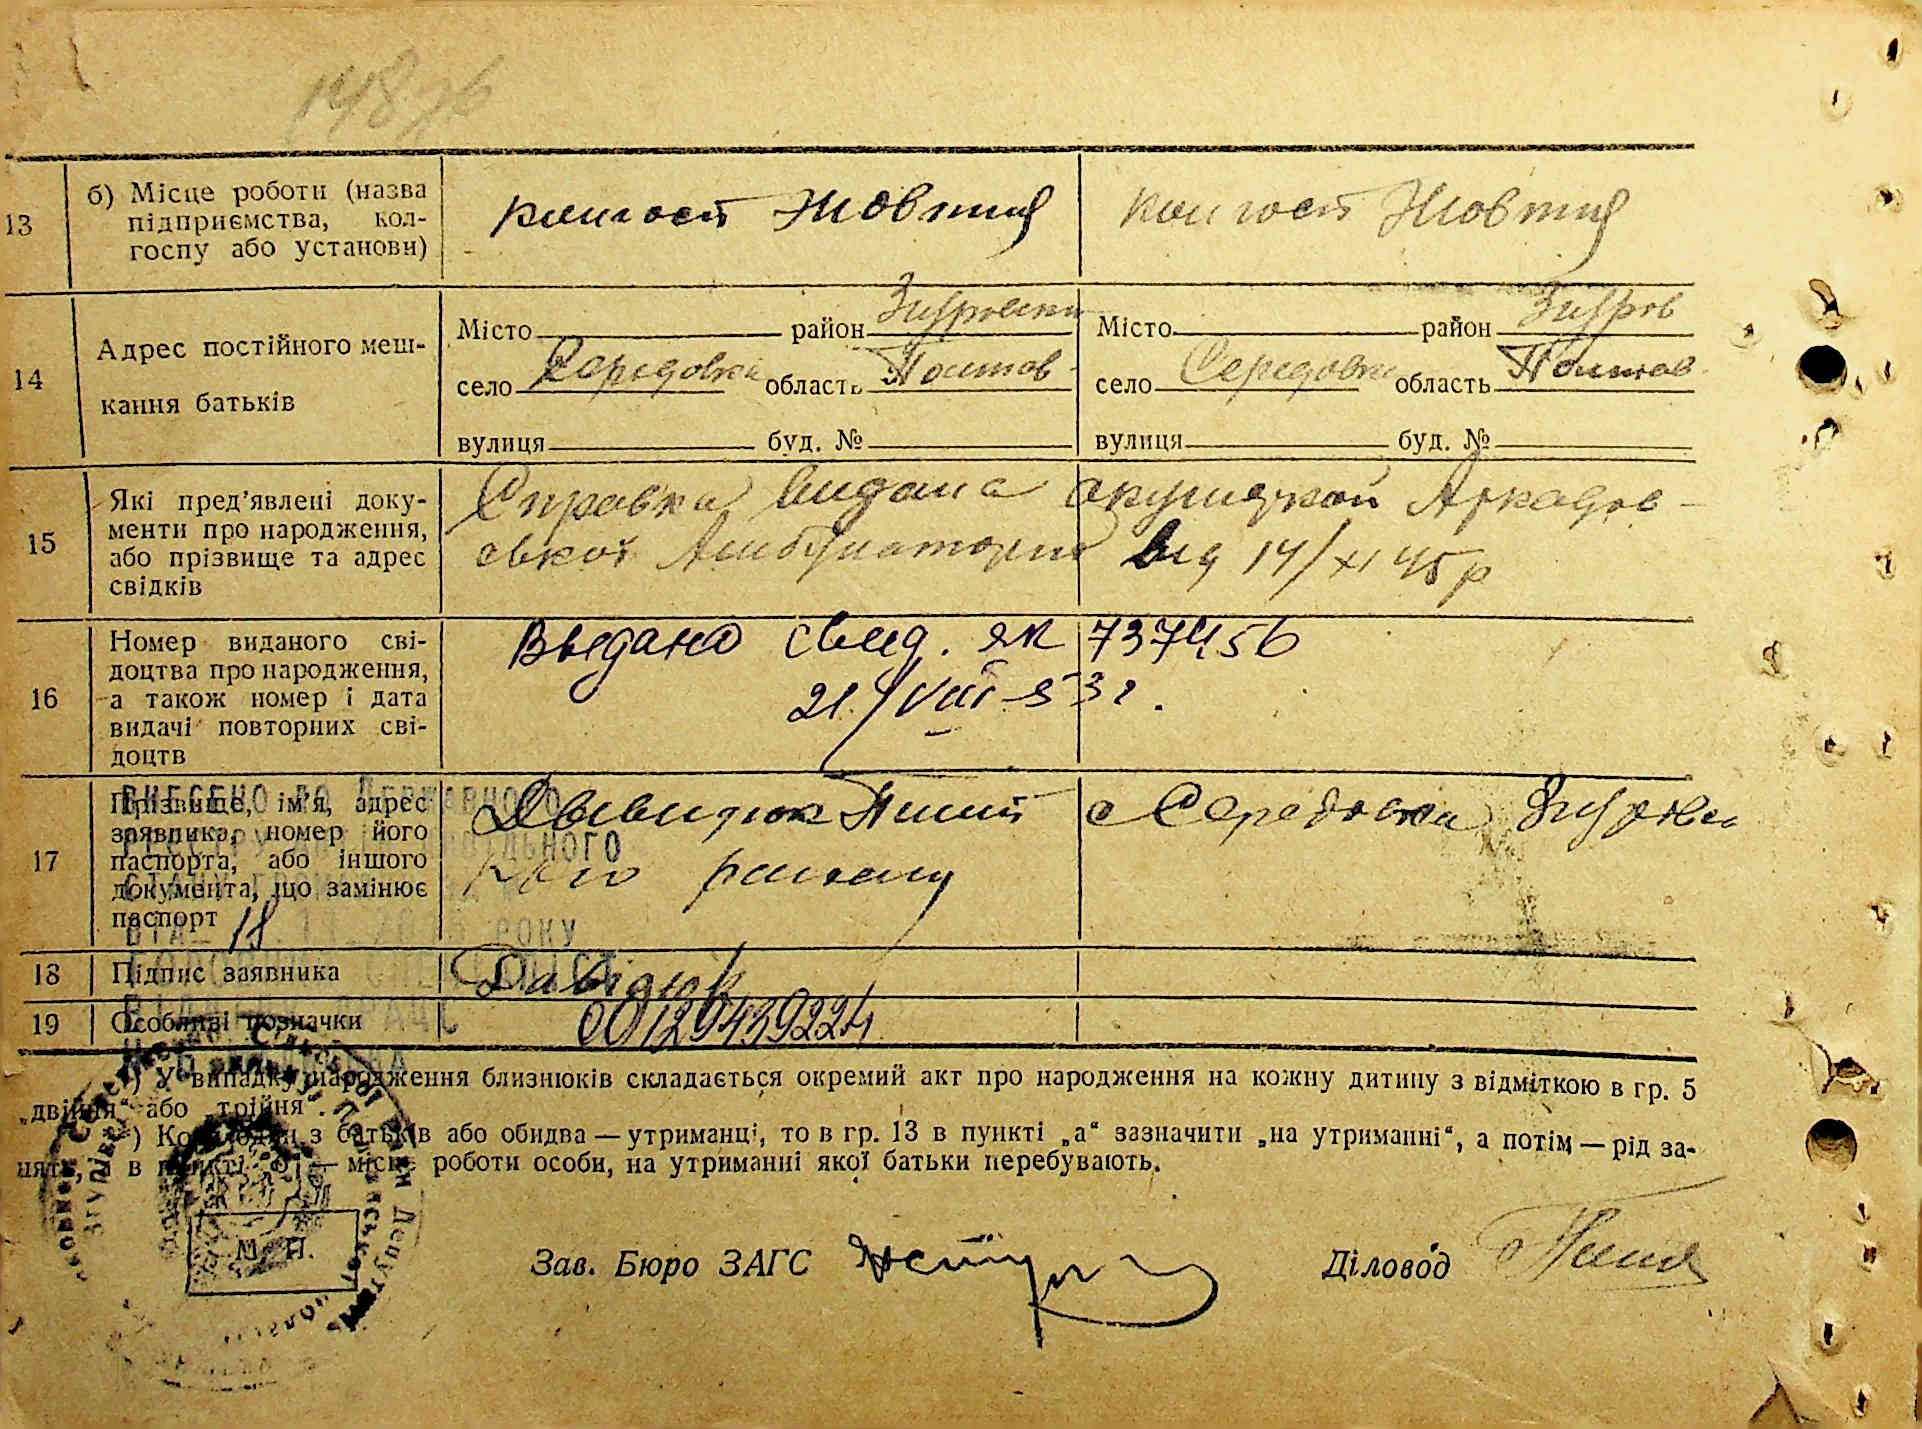 148
13
б) Місце роботи (назва
підприємства, кол-
госпу або установи)
колгосп Жовтня
колгосп Жовтня
14
Адрес постійного меш-
кання батьків
Місто район Згуровськи
село Середовка область Полтав
вулиця буд. №
Місто район Згуров
село Середовка область Полтав
вулиця буд. №
15
Які пред’явлені доку-
менти про народження,
або прізвище та адрес
свідків
Справка видана акушеркой Аркадов-
ської Амбулаторії від 14/XI 45 р
16
Номер виданого сві-
доцтва про народження,
а також номер і дата
видачі повторних сві-
доцтв
Выдано свид. ЯК 737456
21/VIII-53 г.
17
Прізвище, ім’я, адрес
заявника, номер його
паспорта, або іншого
документа, що замінює
паспорт
с Середовка Згуровс
кого району
ВНЕСЕНО ДО ДЕРЖАВНОГО
РЕЄСТРУ
18 РОКУ
18
Підпис заявника
Давідюк
19
Особливі позначки
00129439224
*) У випадку народження близнюків складається окремий акт про народження на кожну дитину з відміткою в гр. 5
„двійня“ або „трійня“.
**) Коли один з батьків або обидва — утриманці, то в гр. 13 в пункті „а“ зазначити „на утриманні“, а потім — рід за-
няття, в пункті „б“ — місце роботи особи, на утриманні якої батьки перебувають.
М. П.
Зав. Бюро ЗАГС
Діловод